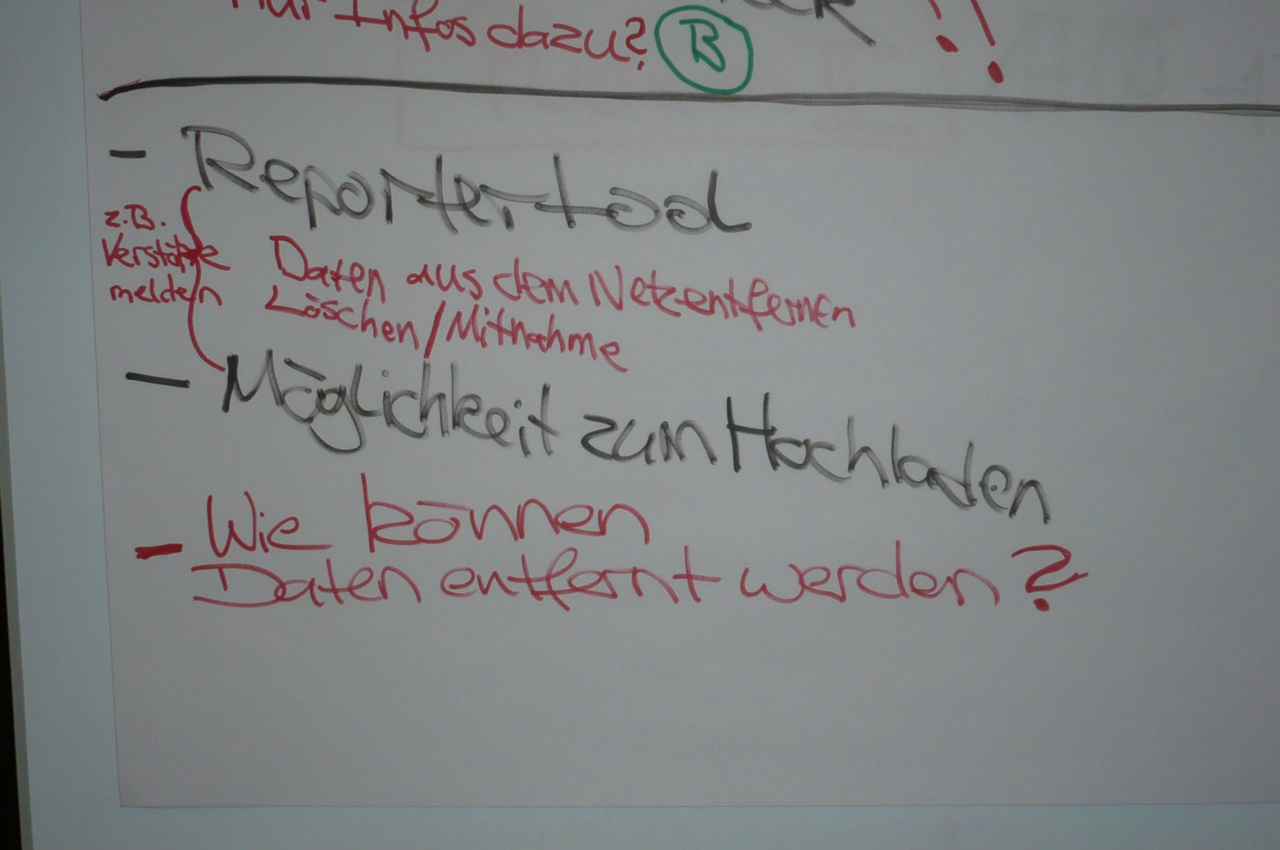 nur Infos dazu? B !!
- Reportertool
z.B.
Verstöße
melden
Daten aus dem Netz entfernen
Löschen/Mitnahme
- Möglichkeit zum Hochladen
- Wie können
Daten entfernt werden?